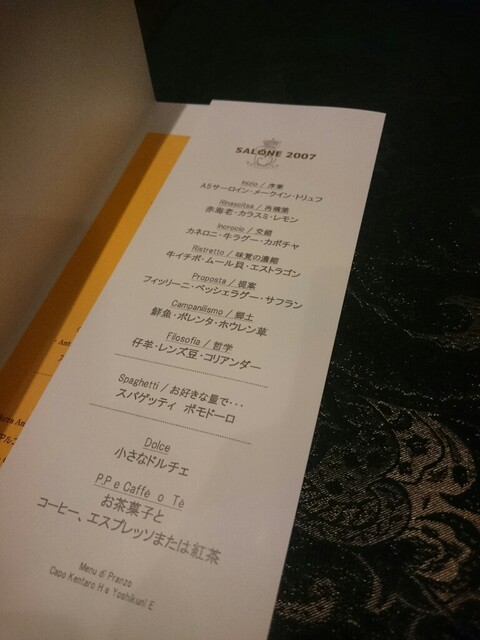 SALONE 2007
Inizio / 序章
A5サーロイン・メークイン・トリュフ
Rinascitsa / 再構築
赤海老・カラスミ・レモン
Incrocio / 交錯
カネロニ・牛ラグー・カボチャ
Ristretto / 味覚の濃縮
牛イチボ・ムール貝・エストラゴン
Proposta / 提案
フィッリーニ・ペッシェラグー・サフラン
Campanilismo / 郷土
鮮魚・ポレンタ・ホウレン草
Filosofia / 哲学
仔羊・レンズ豆・コリアンダー
Spaghetti / お好きな量で・・・
スパゲッティ ポモドーロ
Dolce
小さなドルチェ
P.P e Caffé o Té
お茶菓子と
コーヒー、エスプレッソまたは紅茶
Menu di Pranzo
Capo Kentaro H e Yoshikuni E